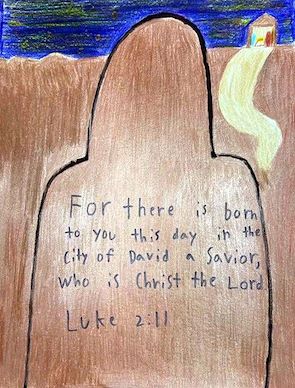 For there is born
to you this day in the
City of David a Savior,
who is Christ the Lord
Luke 2:11